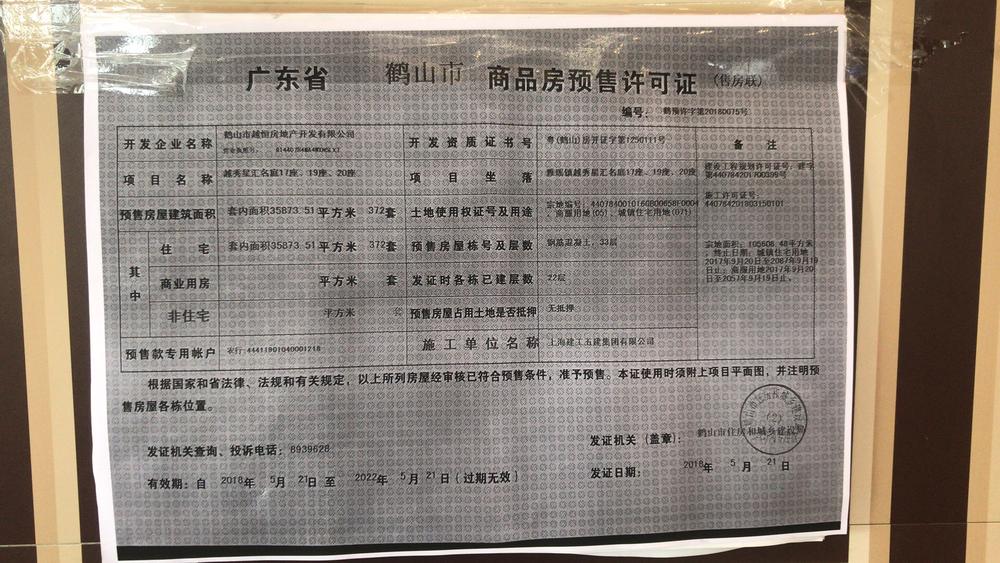 广东省 鹤山市 商品房预售许可证 (售房联)
编号: 鹤预许字第20180075号
开发企业名称 鹤山市越恒房地产开发有限公司 开发资质证书号 粤(鹤山)房开证字第1250111号 备注
项目名称 越秀星汇名庭17座、19座、20座 项目坐落 雅瑶镇越秀星汇名庭17座、19座、20座
建设工程规划许可证号:建字第440784201700399号
预售房屋建筑面积 套内面积35873.51平方米 372套 土地使用权证号及用途 宗地编号:440784001016GB00658F0004、商服用地(05)、城镇住宅用地(071)
施工许可证号:440784201803150101
其中 住宅 套内面积35873.51平方米 372套 预售房屋栋号及层数 钢筋混凝土,33层
宗地面积:105608.48平方米;终止日期:城镇住宅用地2017年9月20日至2087年9月19日止;商服用地2017年9月20日至2057年9月19日止。
商业用房 平方米 套 发证时各栋已建层数 22层
非住宅 平方米 套 预售房屋占用土地是否抵押 无抵押
预售款专用帐户 农行:44411901040001218 施工单位名称 上海建工五建集团有限公司
根据国家和省法律、法规和有关规定,以上所列房屋经审核已符合预售条件,准予预售。本证使用时须附上项目平面图,并注明预
售房屋各栋位置。
发证机关查询、投诉电话:8939628 发证机关(盖章): 鹤山市住房和城乡建设局
有效期:自 2018年 5月 21日 至 2022年 5月 21日(过期无效) 发证日期: 2018年 5月 21日